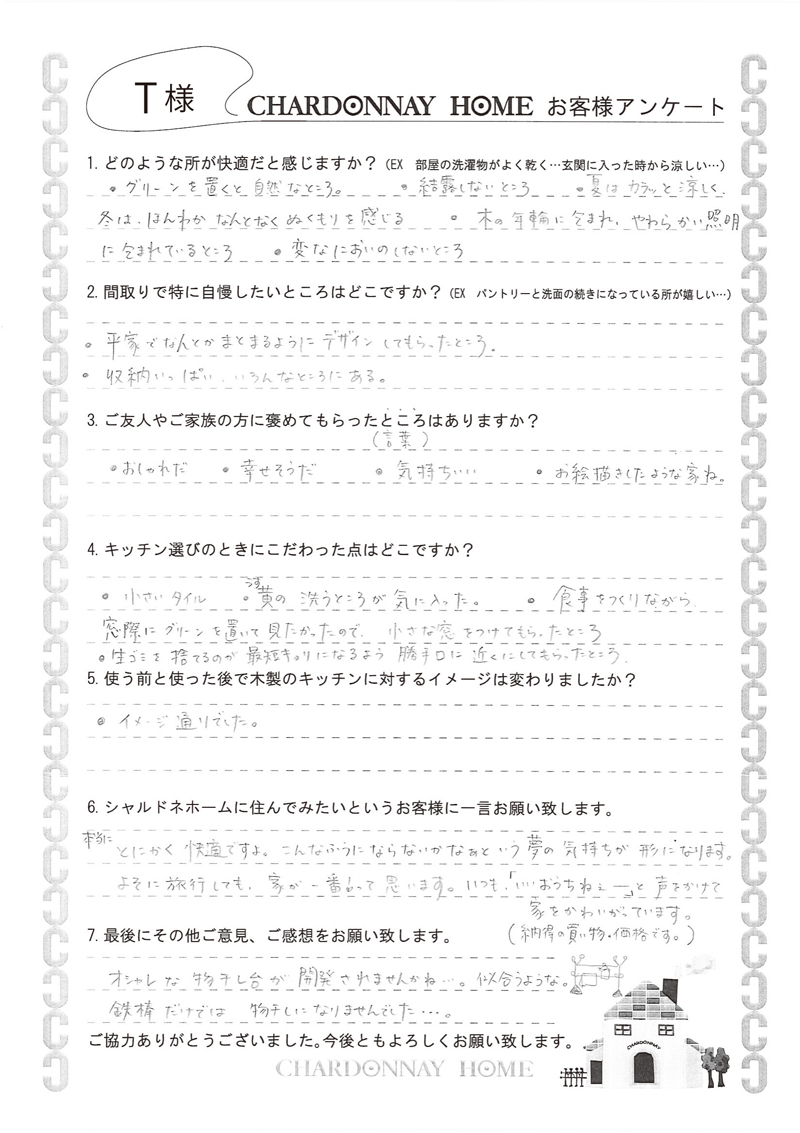 T様
CHARDONNAY HOME お客様アンケート
1. どのような所が快適だと感じますか？（EX 部屋の洗濯物がよく乾く…玄関に入った時から涼しい…）
・グリーンを置くと自然なところ。 ・結露しないところ ・夏はカラッと涼しく、
冬は、ほんわか なんとなく ぬくもりを感じる ・木の年輪に包まれ、やわらかい照明
に包まれているところ ・変なにおいのしないところ
2. 間取りで特に自慢したいところはどこですか？（EX パントリーと洗面の続きになっている所が嬉しい…）
・平家でなんとかまとまるようにデザインしてもらったところ。
・収納いっぱい、いろんなところにある。
3. ご友人やご家族の方に褒めてもらったところはありますか？
（言葉）
・おしゃれだ ・幸せそうだ ・気持ちいい ・お絵描きしたような家ね。
4. キッチン選びのときにこだわった点はどこですか？
うす
・小さいタイル ・黄の洗うところが気に入った。 ・食事をつくりながら
窓際にグリーンを置いて見たかったので、小さな窓をつけてもらったところ
・生ゴミを捨てるのが最短キョリになるよう勝手口に近くにしてもらったところ。
5. 使う前と使った後で木製のキッチンに対するイメージは変わりましたか？
・イメージ通りでした。
6. シャルドネホームに住んでみたいというお客様に一言お願い致します。
本当に
とにかく快適ですよ。こんなふうにならないかなぁという夢の気持ちが形になります。
よそに旅行しても、家が一番って思います。いつも「いいおうちねぇー」と声をかけて
家をかわいがっています。
7. 最後にその他ご意見、ご感想をお願い致します。
（納得の買い物・価格です。）
オシャレな物干し台が開発されませんかね…。似合うような。
鉄棒だけでは物干しになりませんでした…。
ご協力ありがとうございました。今後ともよろしくお願い致します。
CHARDONNAY
CHARDONNAY HOME